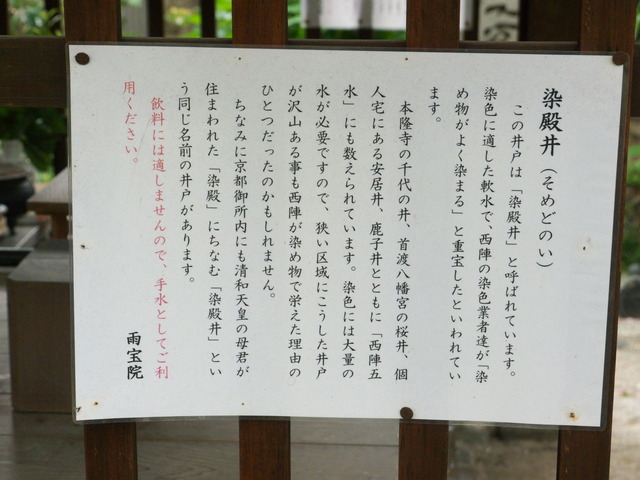 染殿井（そめどのい）
この井戸は「染殿井」と呼ばれています。
染色に適した軟水で、西陣の染色業者達が「染
め物がよく染まる」と重宝したといわれてい
ます。
本隆寺の千代の井、首渡八幡宮の桜井、個
人宅にある安居井、鹿子井とともに「西陣五
水」にも数えられています。染色には大量の
水が必要ですので、狭い区域にこうした井戸
が沢山ある事も西陣が染め物で栄えた理由の
ひとつだったのかもしれません。
ちなみに京都御所内にも清和天皇の母君が
住まわれた「染殿」にちなむ「染殿井」とい
う同じ名前の井戸があります。
飲料には適しませんので、手水としてご利
用ください。
雨宝院